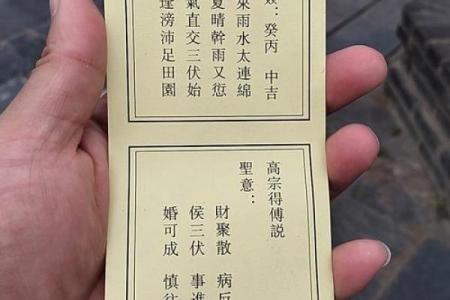 ：癸丙 中吉
來雨水太連綿
夏晴幹雨又愆
氣直交三伏始
逢滂沛足田園
高宗得傅説
聖意：
財聚散 病反
侯三伏 事進
婚可成 慎